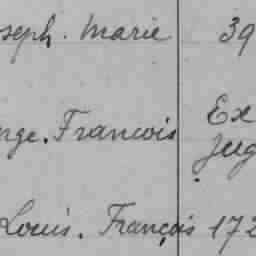 seph. Marie 39
nge. Francois Ex
Jug
Louis. François 172